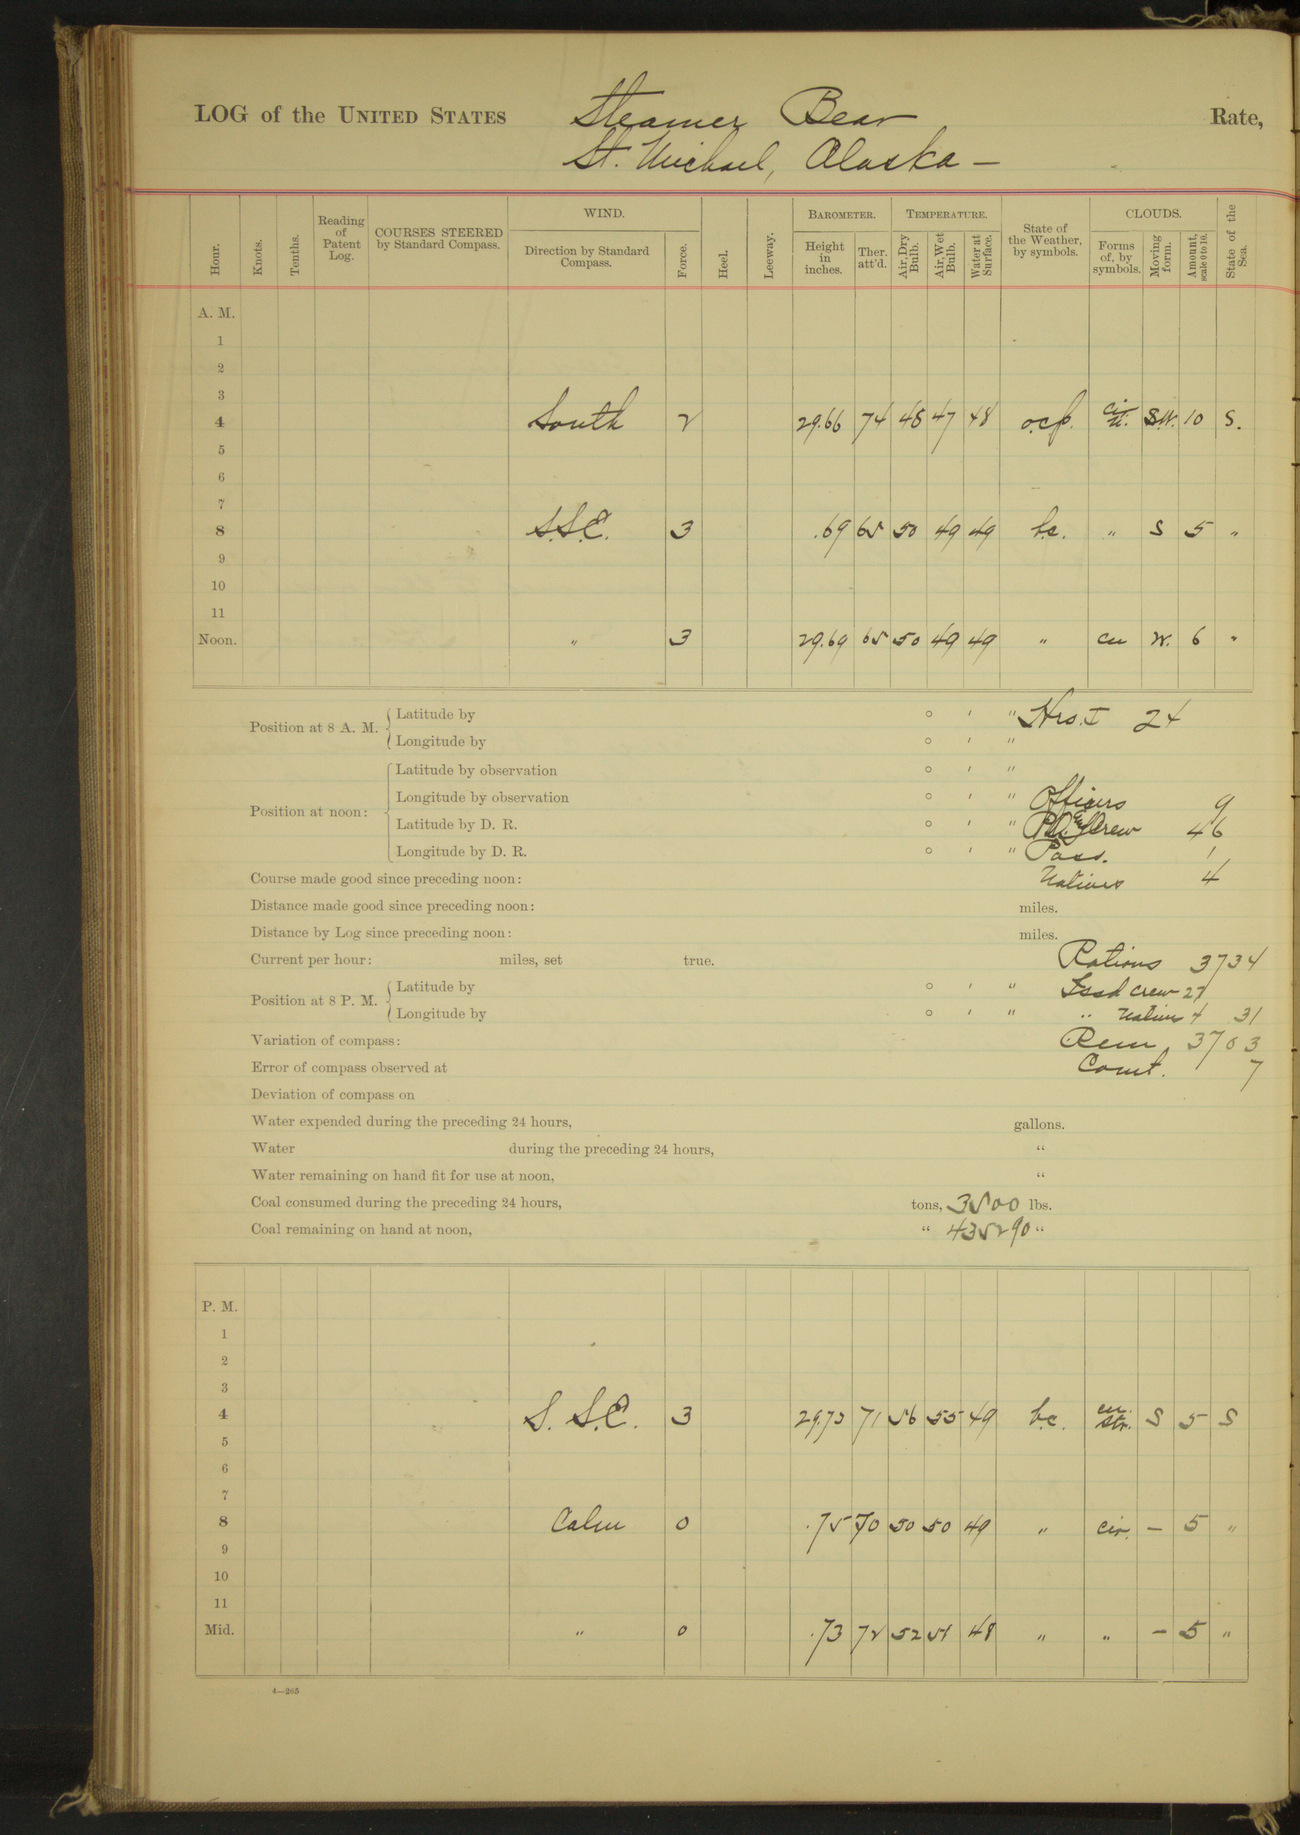 LOG of the UNITED STATES Steamer Bear Rate,
St. Michael, Alaska —
Hour. Knots. Tenths. Reading of Patent Log. COURSES STEERED by Standard Compass. WIND. Direction by Standard Compass. Force. Heel. Leeway. BAROMETER. Height in inches. Ther. att'd. TEMPERATURE. Air, Dry Bulb. Air, Wet Bulb. Water at Surface. State of the Weather, by symbols. CLOUDS. Forms of, by symbols. Moving form. Amount, scale 0 to 10. State of the Sea.
A. M.
1
2
3
4 South 2 29.66 74 48 47 48 o.c.p. S.W. 10 S.
5
6
7
8 S.S.E. 3 .69 65 50 49 49 b.c. " S 5 "
9
10
11
Noon. " 3 29.69 65 50 49 49 " cu W. 6 "
Position at 8 A. M. Latitude by ° ' " Hrs. I 24
Longitude by ° ' "
Position at noon: Latitude by observation ° ' "
Longitude by observation ° ' " Officers 9
Latitude by D. R. ° ' " Crew 46
Longitude by D. R. ° ' " Pass. 1
Course made good since preceding noon: Natives 4
Distance made good since preceding noon: miles.
Distance by Log since preceding noon: miles.
Current per hour: miles, set true. Rations 3734
Position at 8 P. M. Latitude by ° ' " Issd crew 27
Longitude by ° ' " " Natives 4 31
Variation of compass: Rem 3703
Error of compass observed at Comt. 7
Deviation of compass on
Water expended during the preceding 24 hours, gallons.
Water during the preceding 24 hours, "
Water remaining on hand fit for use at noon, "
Coal consumed during the preceding 24 hours, tons, 3500 lbs.
Coal remaining on hand at noon, " 435290 "
P. M.
1
2
3
4 S. S.E. 3 29.73 71 56 55 49 b.c. cu. str. S 5 S
5
6
7
8 Calm 0 .75 70 50 50 49 " cir. — 5 "
9
10
11
Mid. " 0 .73 72 52 51 48 " " — 5 "
4—265